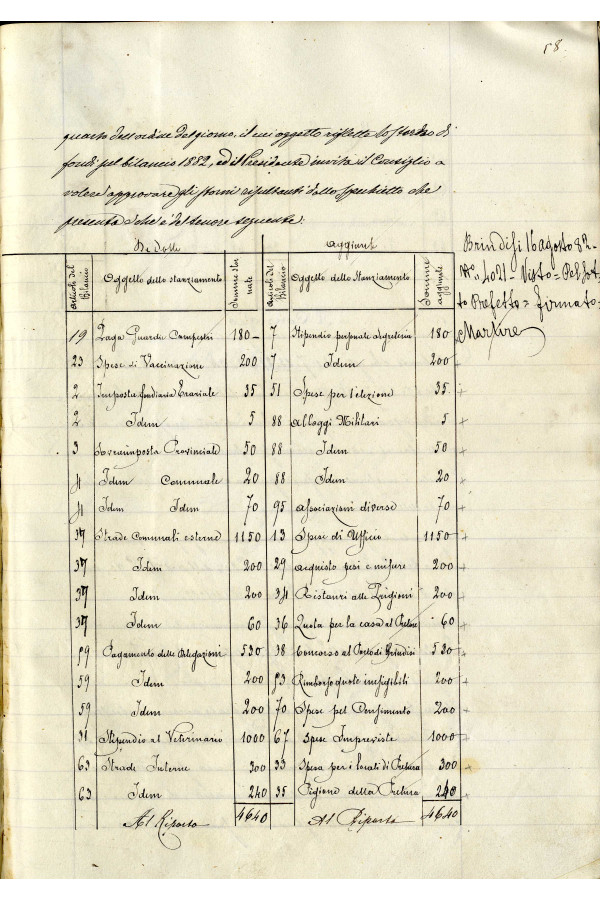 58.
quarto dell'ordine del giorno, il cui oggetto riflette lo storno di
fondi pel bilancio 1882, ed il Presidente invita il Consiglio a
volere approvare gli storni risultanti dallo specchietto che
presenta e che è del tenore seguente:
Brindisi 16 agosto 82-
N°. 4021 - Visto = Pel Sot-
to Prefetto = firmato =
Martire
Dedotti Aggiunti
Articoli del Bilancio Oggetto dello stanziamento Somme stornate Articoli del Bilancio Oggetto dello Stanziamento Somme aggiunte
19 Paga Guardie Campestri 180 - 7 Stipendio personale segreteria 180
23 Spese di Vaccinazione 200 7 Idem 200
2 Imposta fondiaria Erariale 35 51 Spese per l'elezione 35
2 Idem 5 88 Alloggi Militari 5
3 Sovraimposta Provinciale 50 88 Idem 50
4 Idem Comunale 20 88 Idem 20
4 Idem Idem 70 95 Associazioni diverse 70
37 Strade Comunali esterne 1150 13 Spese di Ufficio 1150
37 Idem 200 29 Acquisto pesi e misure 200
37 Idem 200 34 Ristauri alle Prigioni 200
37 Idem 60 36 Quota per la casa al Pretore 60
59 Pagamento delle Delegazioni 530 38 Concorso al Porto di Brindisi 530
59 Idem 200 53 Rimborso quote inesigibili 200
59 Idem 200 70 Spese pel Censimento 200
31 Stipendio al Veterinario 1000 67 Spese Impreviste 1000
63 Strade Interne 300 33 Spesa per i locali di Pretura 300
63 Idem 240 35 Pigione della Pretura 240
Al Riporto 4640 Al Riporto 4640